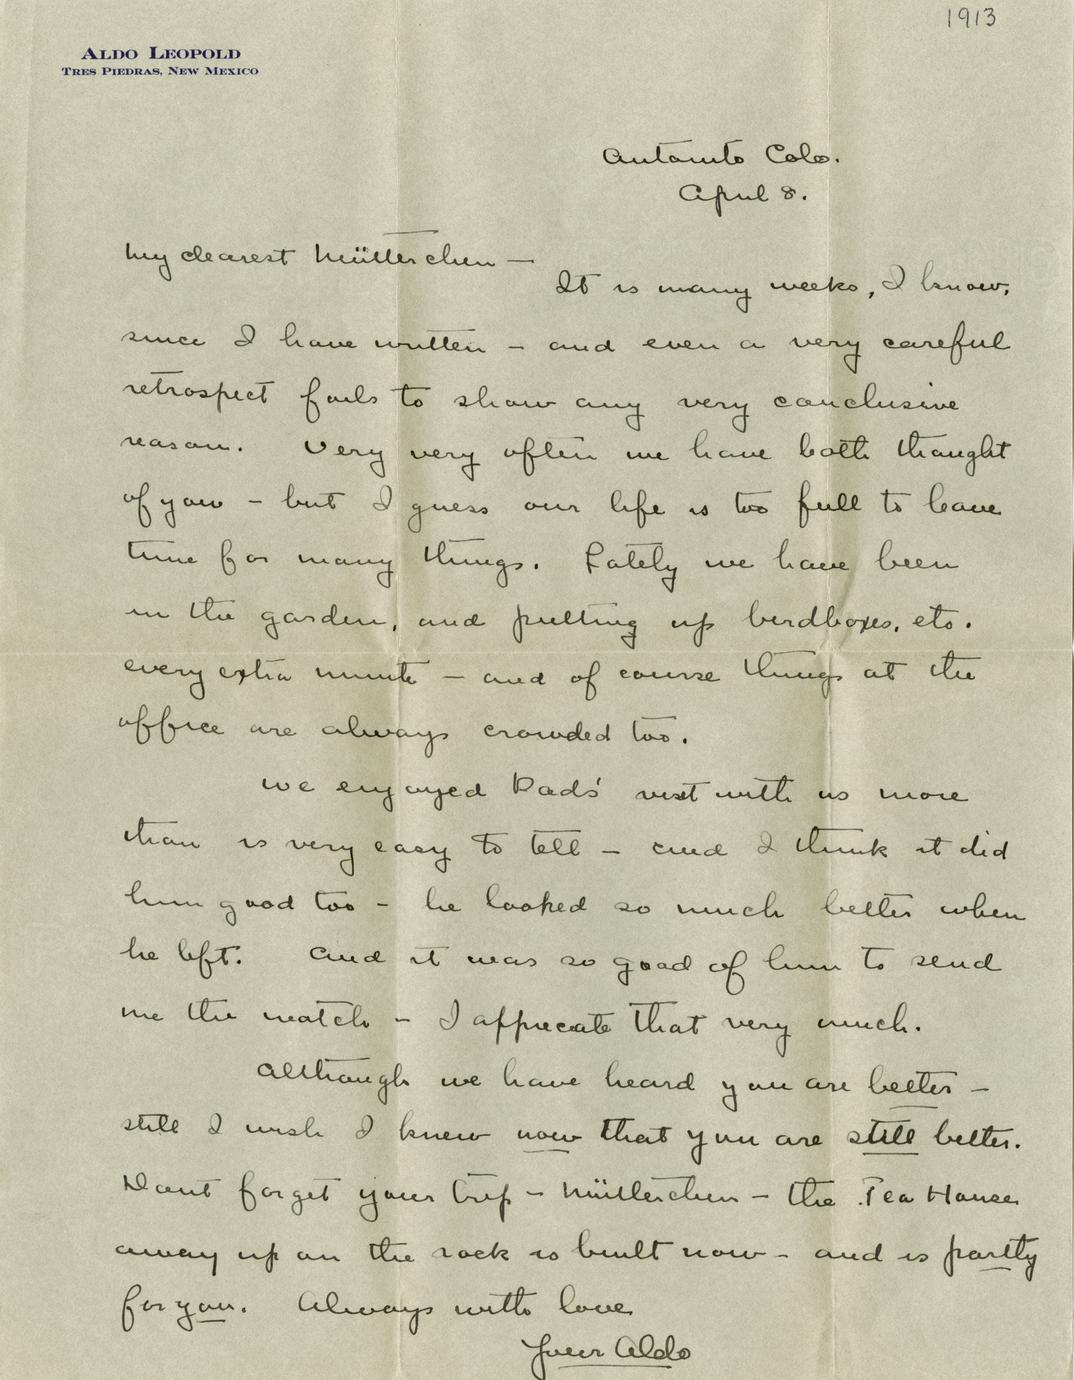 1913
ALDO LEOPOLD
TRES PIEDRAS, NEW MEXICO
Antonito Colo.
April 8.
My dearest Mütterchen —
It is many weeks, I know,
since I have written – and even a very careful
retrospect fails to show any very conclusive
reason. Very very often we have both thought
of you – but I guess our life is too full to leave
time for many things. Lately we have been
in the garden, and putting up birdboxes, etc.
every extra minute – and of course things at the
office are always crowded too.
We enjoyed Dads' visit with us more
than is very easy to tell – and I think it did
him good too – he looked so much better when
he left. And it was so good of him to send
me the watch – I appreciate that very much.
Although we have heard you are better –
still I wish I knew now that you are still better.
Dont forget your trip – Mütterchen – the Tea House
away up on the rock is built now – and is partly
for you. Always with love
Your Aldo